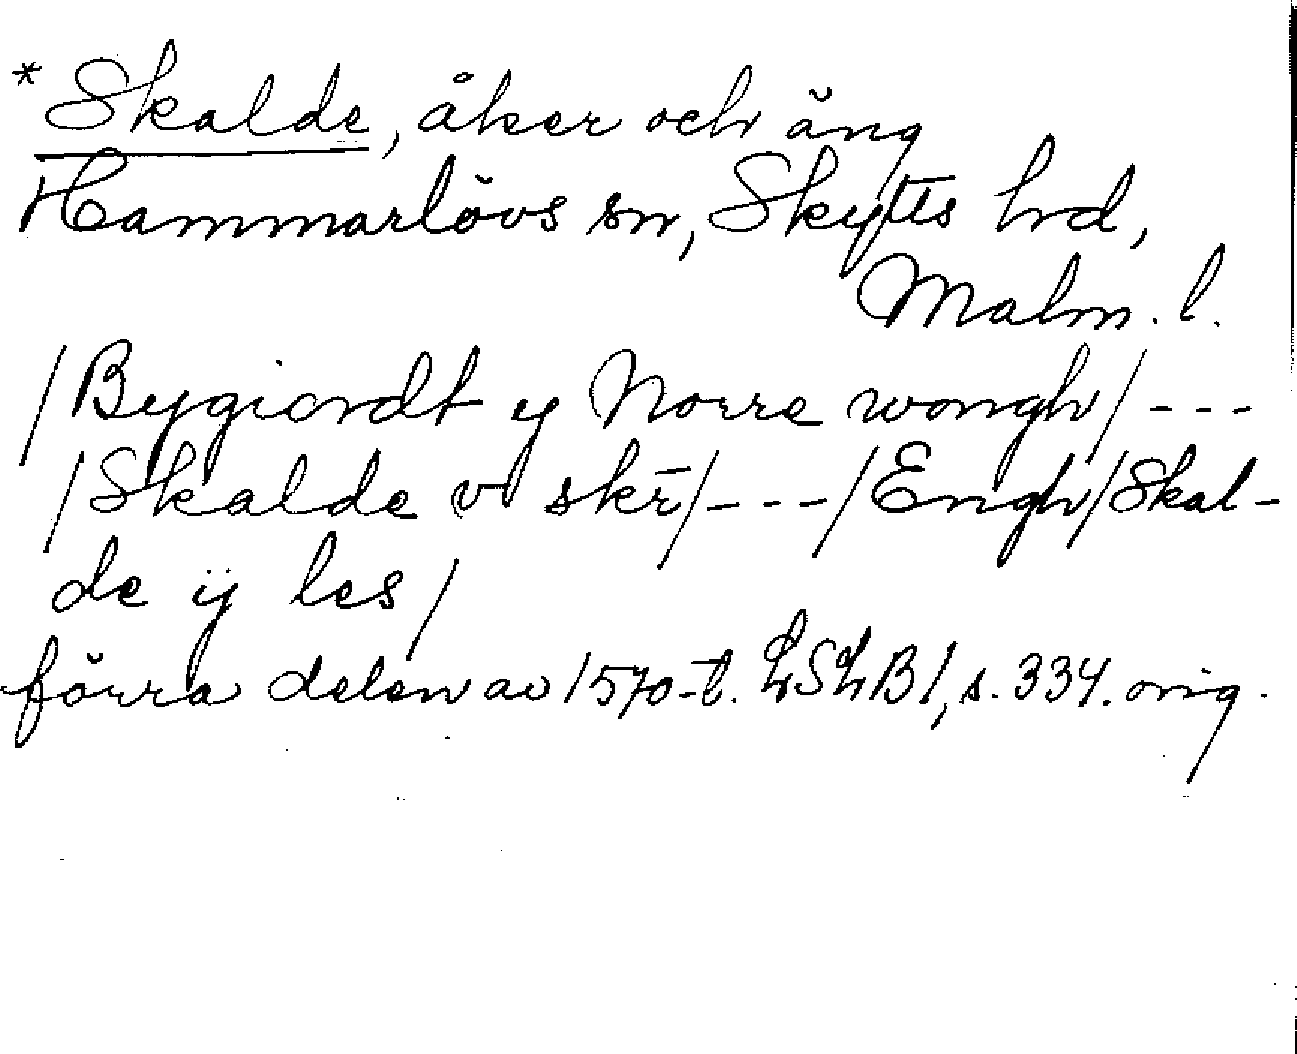 *Skalde, åker och äng
Hammarlövs sn, Skytts hd,
Malm. l.
/Bygiordt y Norre wongh/---
/Skalde v skr̄/---/Engh/Skal-
de ÿ les/
förra delen av 1570-t. LSLB1, s. 334. orig.